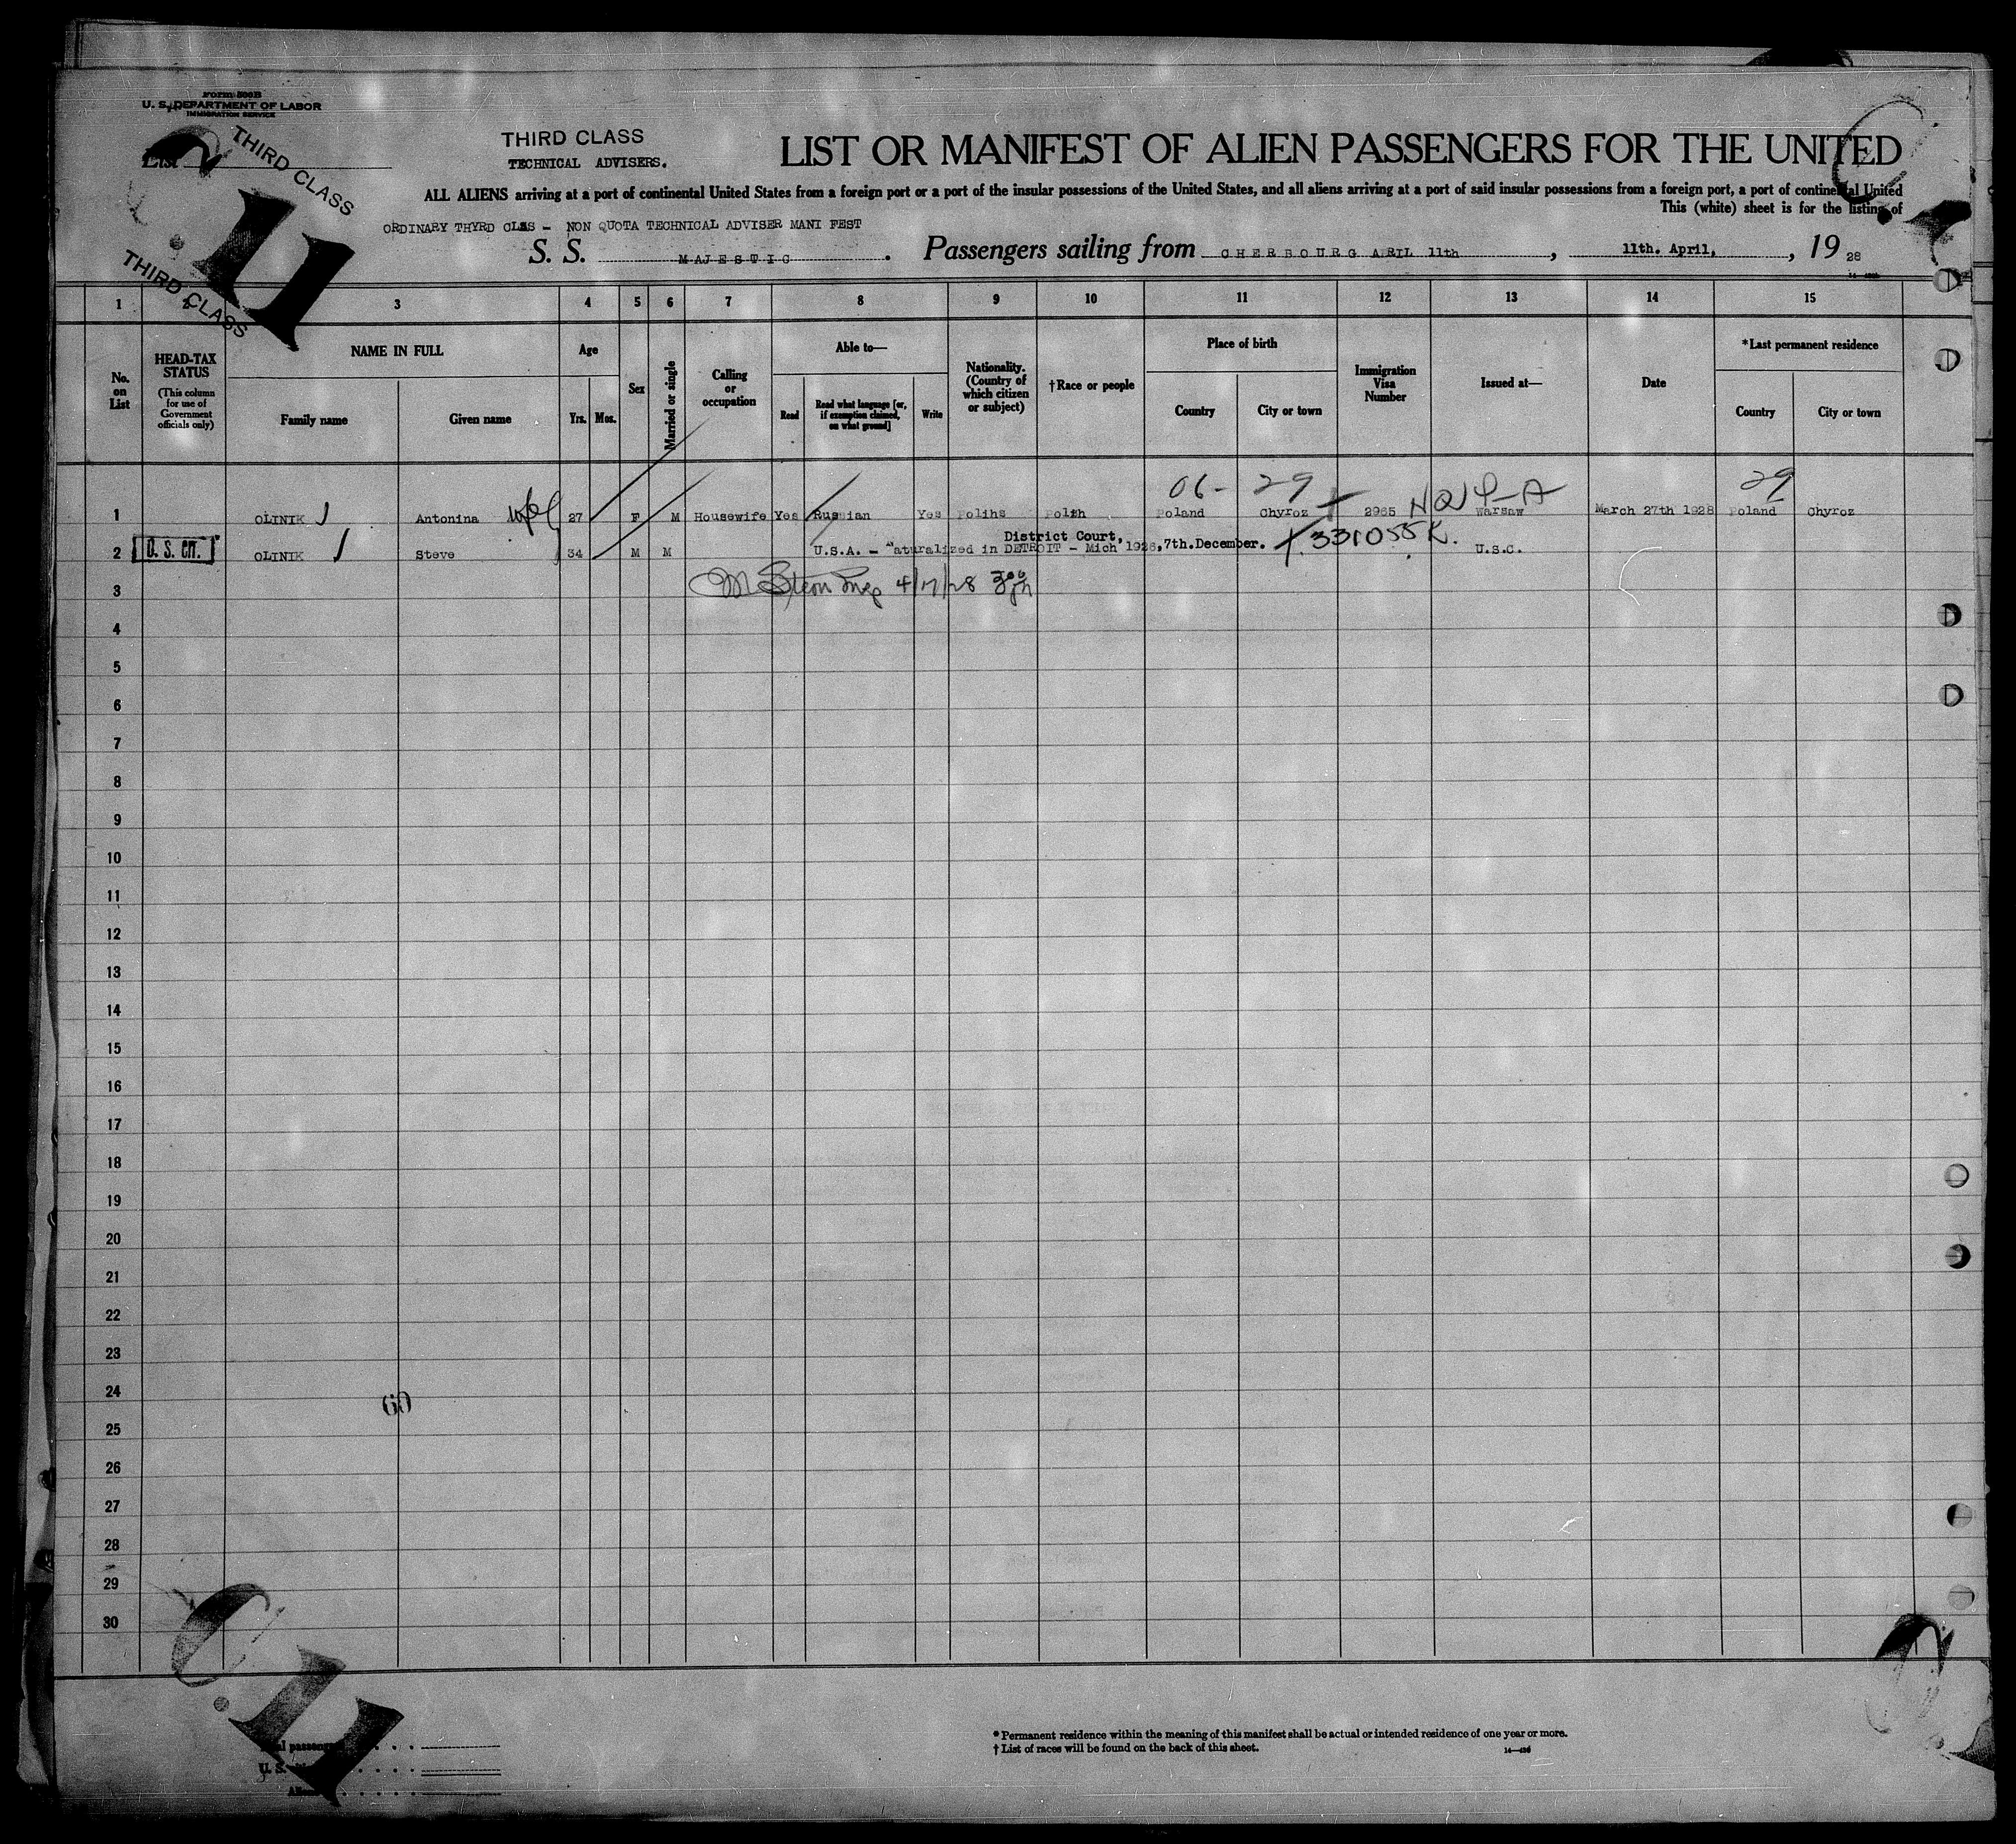 Form 500B
U. S. DEPARTMENT OF LABOR
IMMIGRATION SERVICE
List
THIRD CLASS
THIRD CLASS
THIRD CLASS
TECHNICAL ADVISERS.
LIST OR MANIFEST OF ALIEN PASSENGERS FOR THE UNITED
ALL ALIENS arriving at a port of continental United States from a foreign port or a port of the insular possessions of the United States, and all aliens arriving at a port of said insular possessions from a foreign port, a port of continental United
This (white) sheet is for the listing of
ORDINARY THYRD CLAS - NON QUOTA TECHNICAL ADVISER MANI FEST
S. S. MAJESTIC . Passengers sailing from CHERBOURG ARIL 11th , 11th. April, , 19 28
1 2 3 4 5 6 7 8 9 10 11 12 13 14 15
No. on List
HEAD-TAX STATUS
(This column for use of Government officials only)
NAME IN FULL
Family name Given name
Age
Yrs. Mos.
Sex
Married or single
Calling or occupation
Able to—
Read
Read what language [or, if exemption claimed, on what ground]
Write
Nationality. (Country of which citizen or subject)
†Race or people
Place of birth
Country City or town
Immigration Visa Number
Issued at—
Date
*Last permanent residence
Country City or town
06- 29 29
1 OLINIK Antonina wife 27 F M Housewife Yes Russian Yes Polihs Polih Poland Chyroz 2965 NQ 4-A Warsaw March 27th 1928 Poland Chyroz
District Court,
2 U. S. CIT. OLINIK Steve 34 M M U.S.A. - Naturalized in DETROIT - Mich 1926, 7th.December. 331055 K. U.S.C.
3 M Stern Insp 4/17/28
4
5
6
7
8
9
10
11
12
13
14
15
16
17
18
19
20
21
22
23
24
25
26
27
28
29
30
* Permanent residence within the meaning of this manifest shall be actual or intended residence of one year or more.
† List of races will be found on the back of this sheet.
U. S.